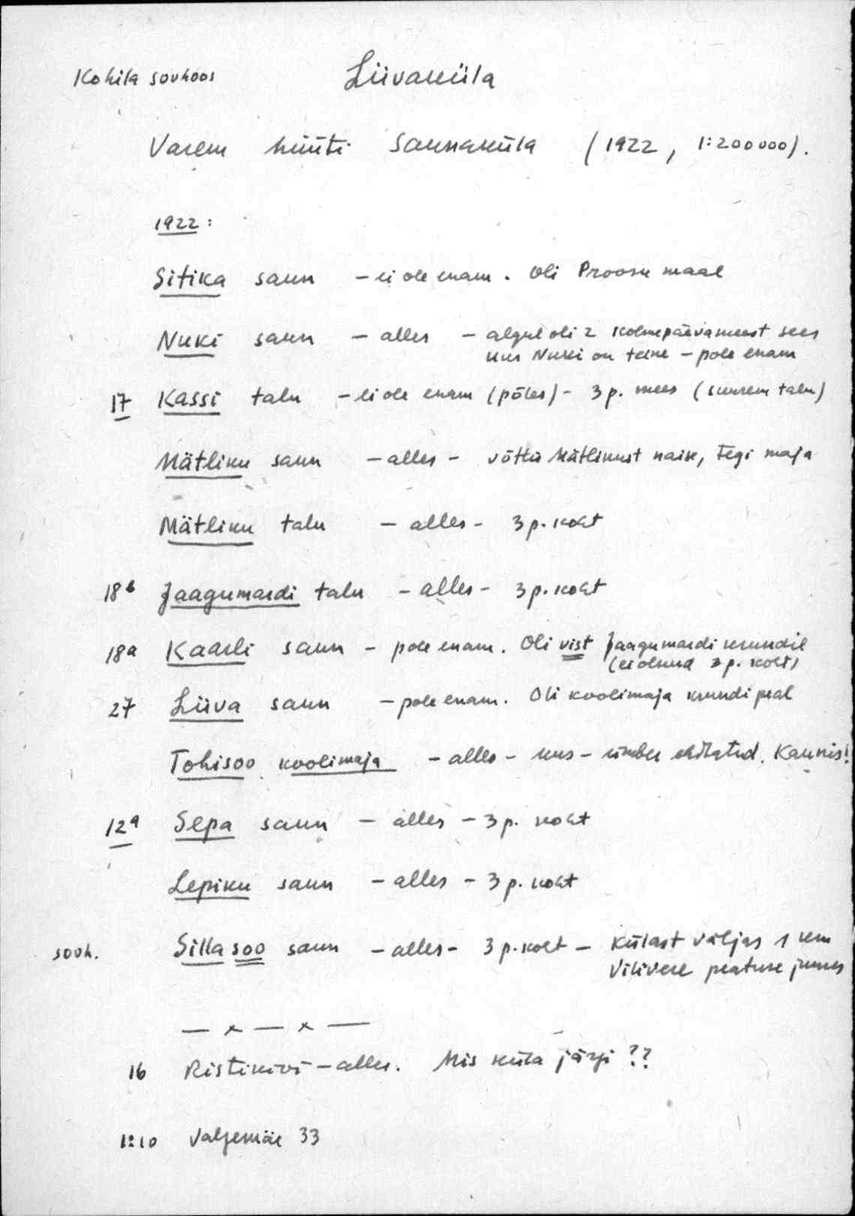 Kohila sovhoos Liivaküla
Varem hüüti Saunaküla (1922, 1:200000).
1922:
Sitika saun – ei ole enam. Oli Proosu maal
Nuki saun – alles – algul oli 2 kolmepäevameest sees
uus Nuki on teine – pole enam
17 Kassi talu – ei ole enam (põles) – 3 p. mees (suurem talu)
Mätliku saun – alles – võttis Mätlikust naise, tegi maja
Mätliku talu – alles – 3 p. koht
18b Jaagumardi talu – alles – 3 p. koht
18a Kaarli saun – pole enam. Oli vist Jaagumardi krundil
(ei olnud 3 p. koht)
27 Liiva saun – pole enam. Oli koolimaja krundi peal
Tohisoo koolimaja – alles – uus – ümber ehitatud. Kaunis!
12a Sepa saun – alles – 3 p. koht
Lepiku saun – alles – 3 p. koht
sovh. Sillasoo saun – alles – 3 p. koht – külast väljas 1 km
Vilivere peatuse juures
— x — x —
16 Ristikivi – alles. Mis küla järgi ??
1:10 Valgemäe 33